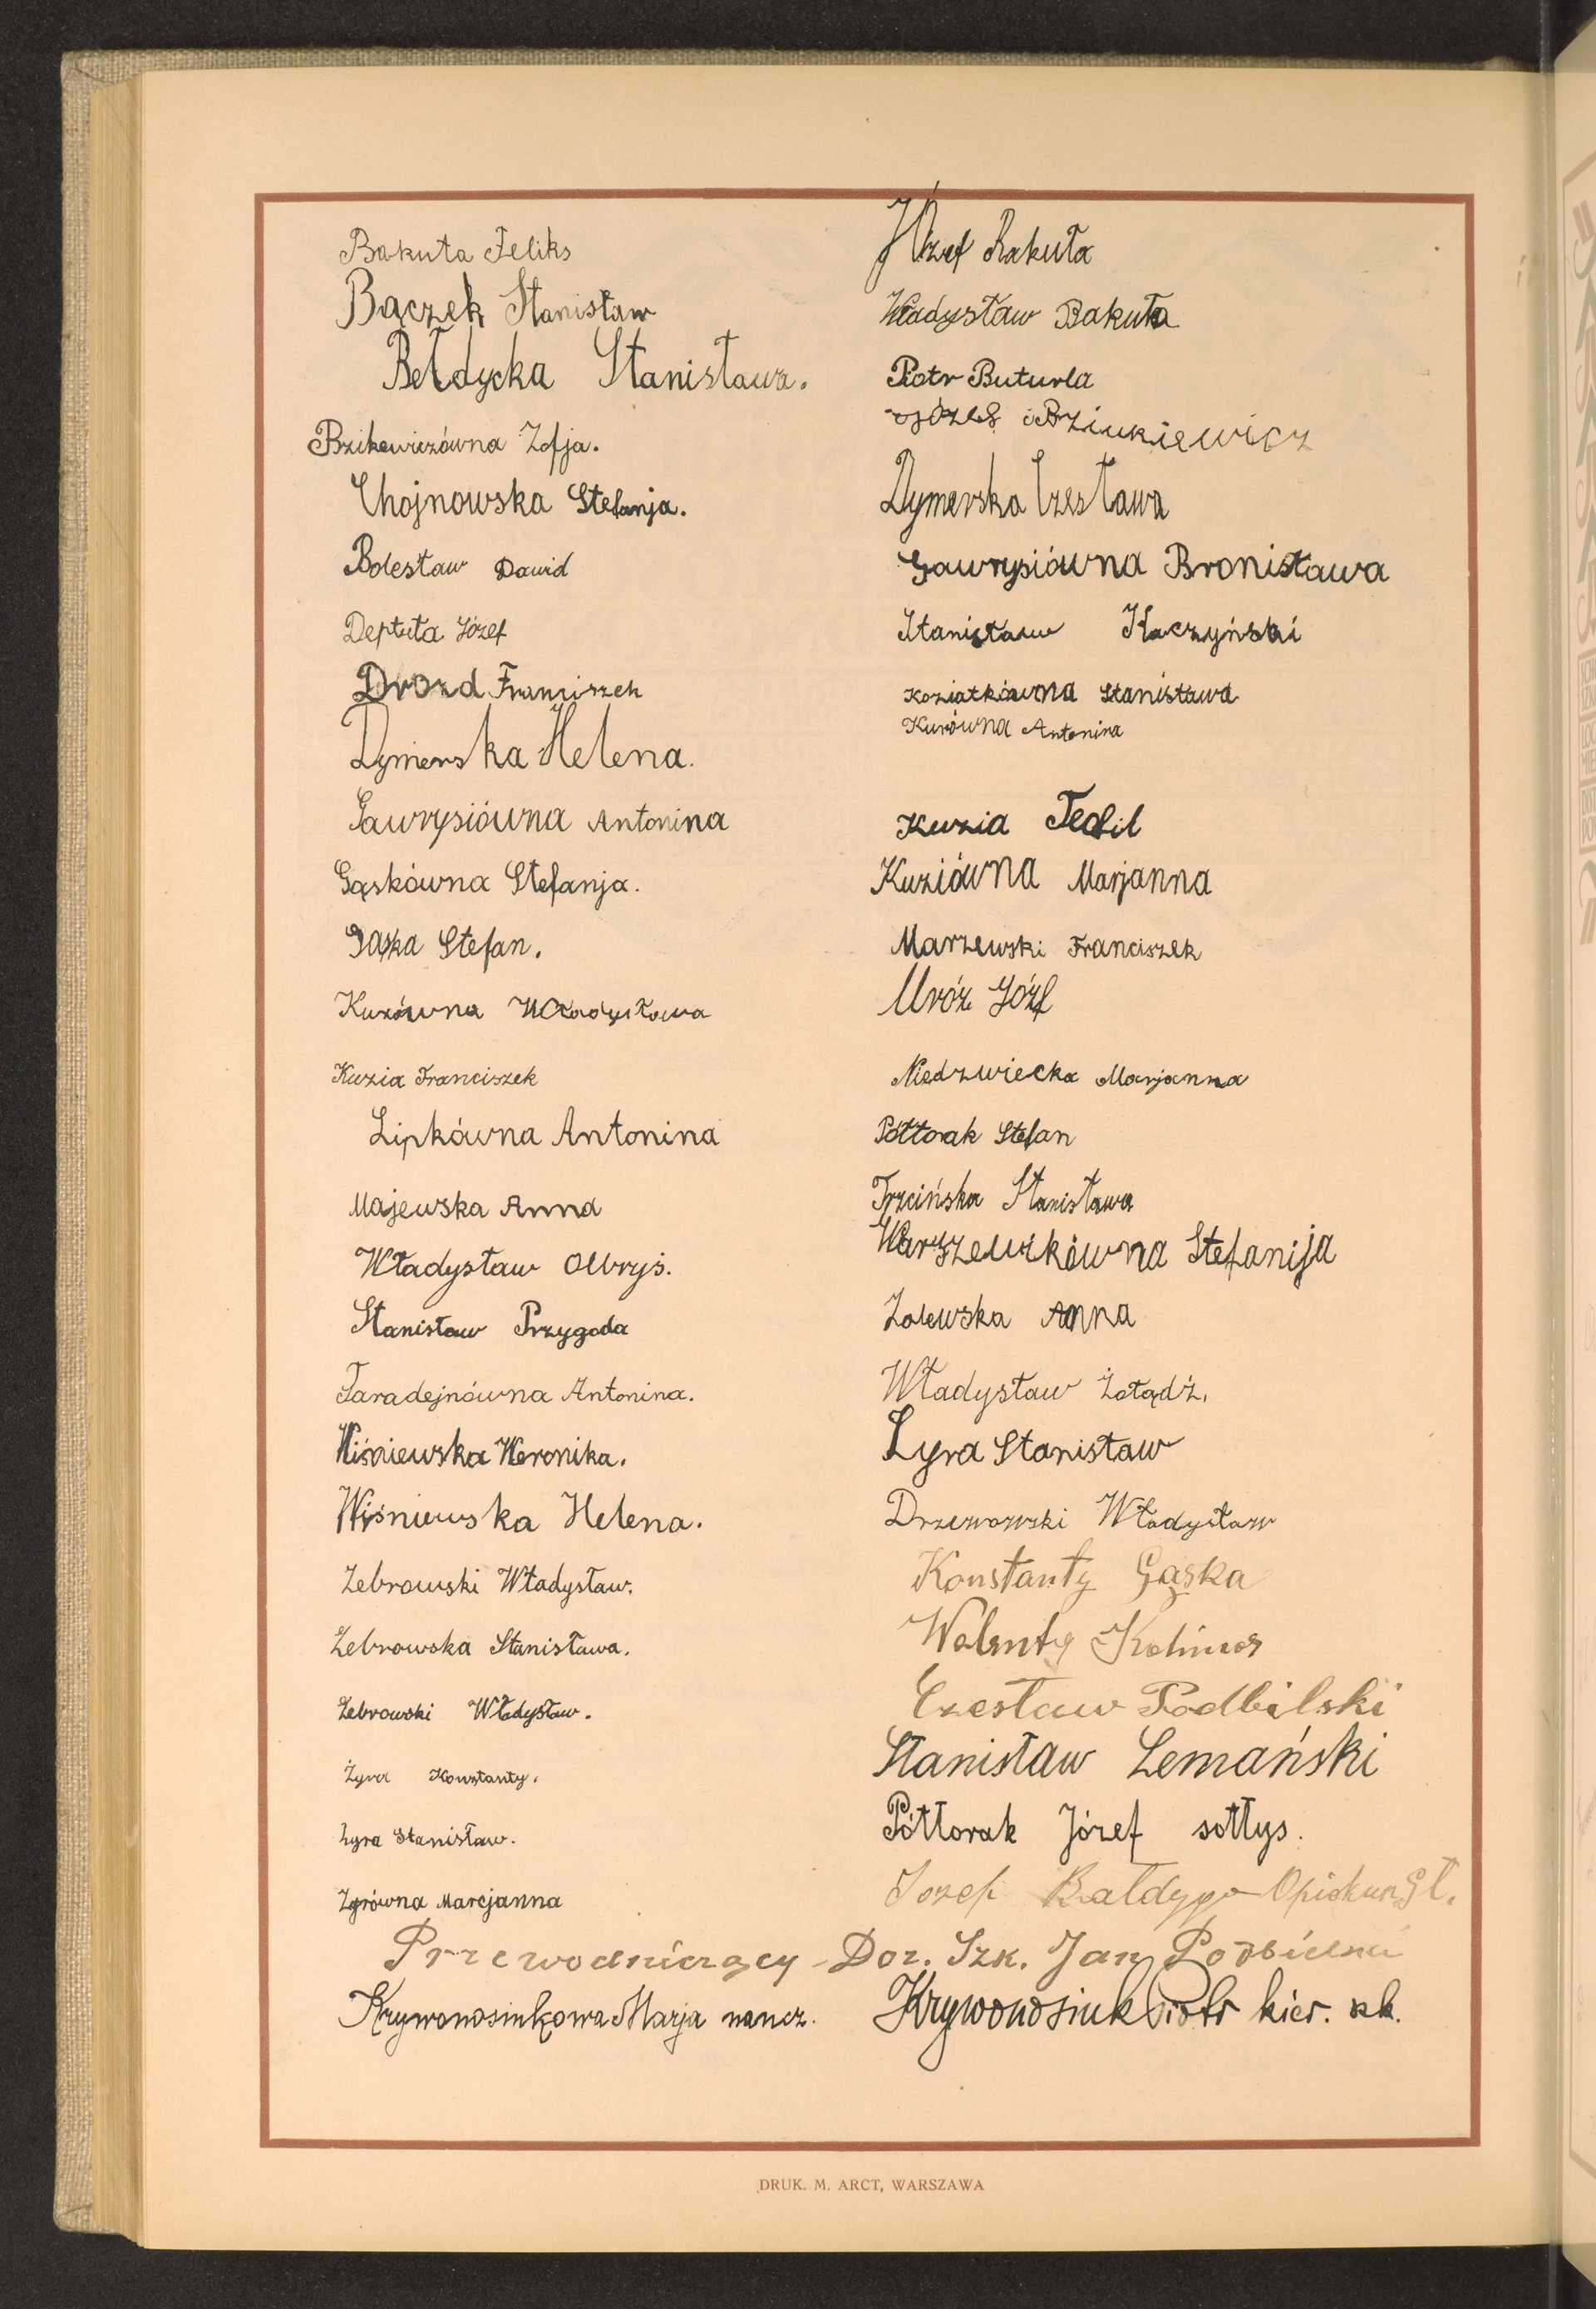 Bakuła Feliks
Bączek Stanisław
Bełdycka Stanisława.
Bzikewiczówna Zofja.
Chojnowska Stefanja.
Bolesław Dawid
Deptuła Józef
Drozd Franciszek
Dymerska Helena.
Gawrysiówna Antonina
Gąskówna Stefanja.
Gąska Stefan.
Kurówna Władysława
Kuzia Franciszek
Lipkówna Antonina
Majewska Anna
Władysław Olbryś.
Stanisław Przygoda
Taradejnówna Antonina.
Wiśniewska Weronika.
Wiśniewska Helena.
Żebrowski Władysław.
Żebrowska Stanisława.
Żebrowski Władysław.
Żyra Konstanty.
Żyra Stanisław.
Żyrówna Marcjanna
Józef Bakuła
Władysław Bakuła
Piotr Buturla
Józef Bziukiewicz
Dymerska Czesława
Gawrysiówna Bronisława
Stanisław Kaczyński
Koziatkówna Stanisława
Kurówna Antonina
Kuzia Teofil
Kuziówna Marjanna
Marzewski Franciszek
Mróz Józef
Niedzwiecka Marjanna
Półtorak Stefan
Trzcińska Stanisława
Stefanija
Zalewska Anna
Władysław Żołądź.
Żyra Stanisław
Drzewowski Władysław
Konstanty Gąska
Walenty
Czesław Podbilski
Stanisław Lemański
Półtorak Józef sołtys.
Józef Bałdyga Opiekun
Przewodniczący Doz. Szk. Jan Podbielski
Krywonosiukowa Marja naucz.
Krywonosiuk Piotr kier. szk.
DRUK. M. ARCT, WARSZAWA